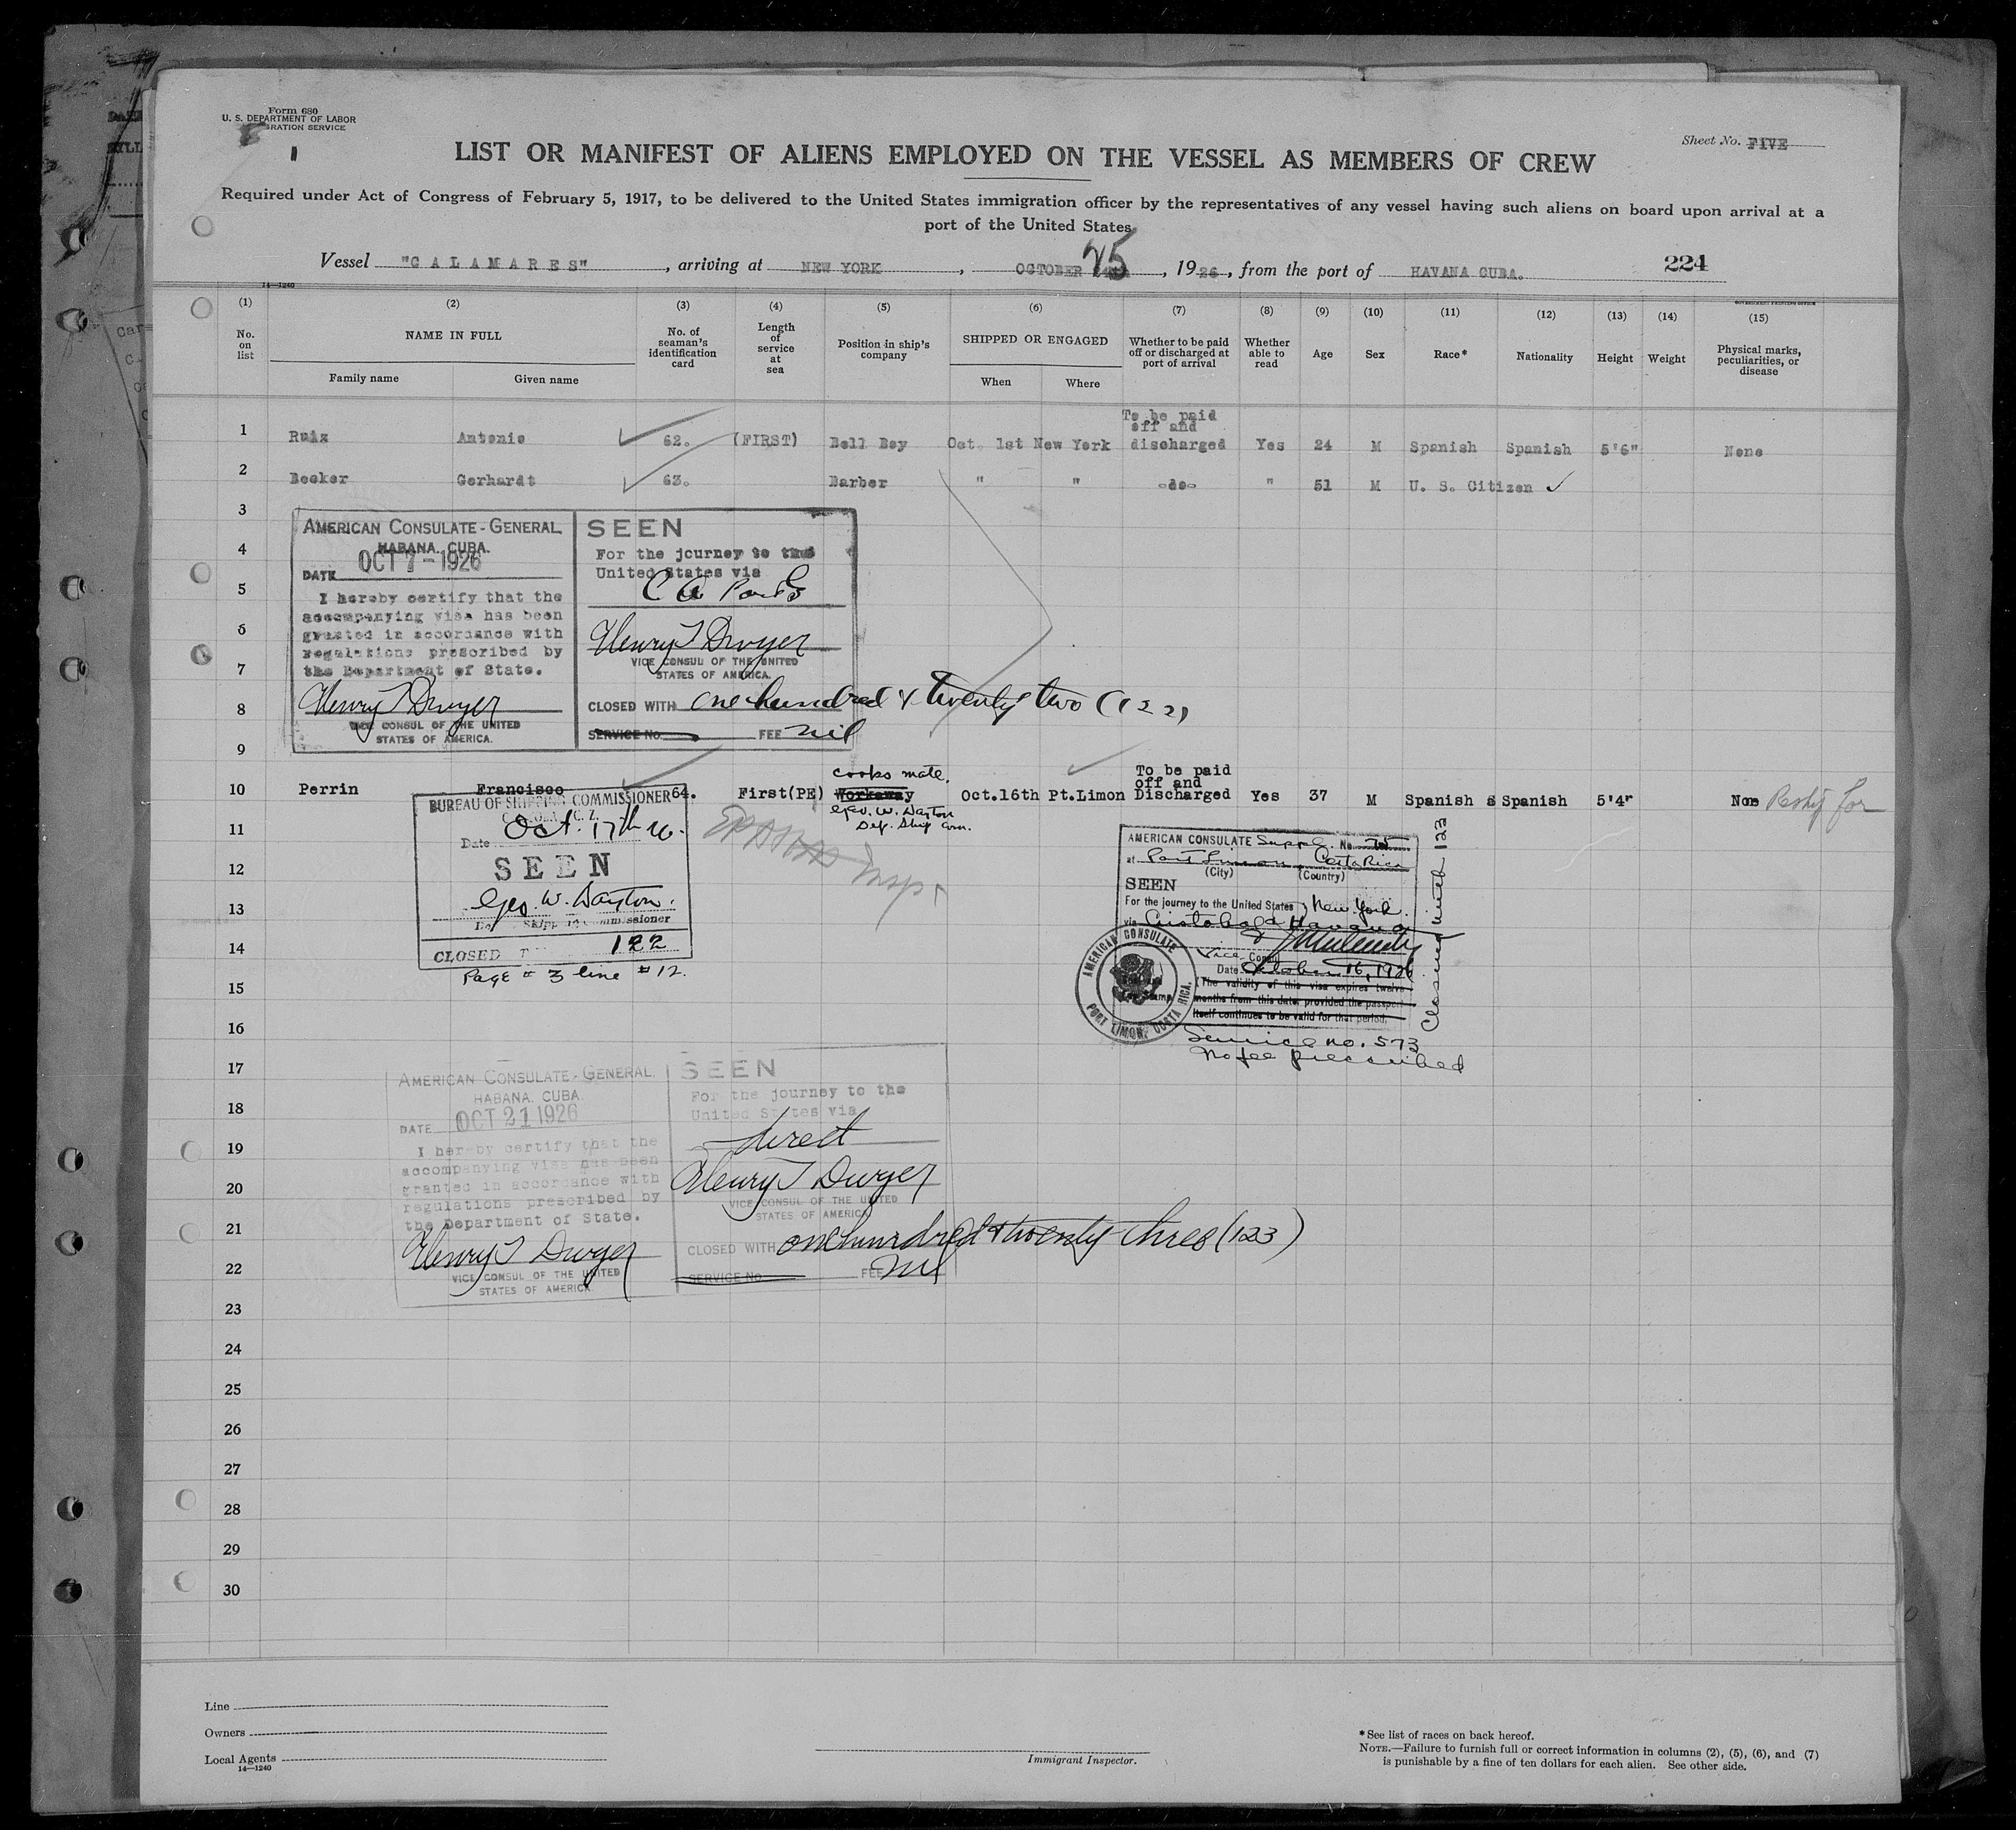 Form 680
U. S. DEPARTMENT OF LABOR
RATION SERVICE
1
Sheet No. FIVE
LIST OR MANIFEST OF ALIENS EMPLOYED ON THE VESSEL AS MEMBERS OF CREW
Required under Act of Congress of February 5, 1917, to be delivered to the United States immigration officer by the representatives of any vessel having such aliens on board upon arrival at a
port of the United States
Vessel "CALAMARES", arriving at NEW YORK, OCTOBER 25, 1926, from the port of HAVANA CUBA. 224
14—1240
GOVERNMENT PRINTING OFFICE
(1) (2) (3) (4) (5) (6) (7) (8) (9) (10) (11) (12) (13) (14) (15)
No. on list NAME IN FULL No. of seaman's identification card Length of service at sea Position in ship's company SHIPPED OR ENGAGED Whether to be paid off or discharged at port of arrival Whether able to read Age Sex Race* Nationality Height Weight Physical marks, peculiarities, or disease
Family name Given name When Where
To be paid
off and
1 Ruiz Antonio 62. (FIRST) Bell Boy Oct. 1st New York discharged Yes 24 M Spanish Spanish 5'6" None
2 Becker Gerhardt 63. Barber " " -do- " 51 M U. S. Citizen ✓
3
4
5
6
7
8
9
AMERICAN CONSULATE-GENERAL
HABANA. CUBA.
DATE OCT 7-1926
I hereby certify that the
accompanying visa has been
granted in accordance with
regulations prescribed by
the Department of State.
Henry T Dwyer
VICE CONSUL OF THE UNITED
STATES OF AMERICA.
SEEN
For the journey to the
United States via
C Z Ports
Henry T Dwyer
VICE CONSUL OF THE UNITED
STATES OF AMERICA.
CLOSED WITH one hundred & twenty two (122)
SERVICE No. FEE nil
cooks mate.
To be paid
off and
10 Perrin Francisco 64. First(PE) Workaway Oct.16th Pt.Limon Discharged Yes 37 M Spanish s Spanish 5'4" None
Geo. W. Dayton
Dep. Ship Com.
11
12
13
14
15
16
BUREAU OF SHIPPING COMMISSIONER
C. Z.
Date Oct. 17th 26.
SEEN
Geo. W. Dayton.
Shipping Commissioner
CLOSED 122
Page # 3 line #12.
AMERICAN CONSULATE Suppl. No.
at Port Limon, Costa Rica
(City) (Country)
SEEN
For the journey to the United States New York.
via Cristobal & Havana
Vice Consul
Date October 16, 1926
(The validity of this visa expires twelve
months from this date, provided the passport
itself continues to be valid for that period.
Service no. 573
No fee prescribed
Closed with 123
AMERICAN CONSULATE
PORT LIMON, COSTA RICA.
17
18
19
20
21
22
AMERICAN CONSULATE-GENERAL.
HABANA. CUBA.
DATE OCT 21 1926
I hereby certify that the
accompanying visa has been
granted in accordance with
regulations prescribed by
the Department of State.
Henry T Dwyer
VICE CONSUL OF THE UNITED
STATES OF AMERICA.
SEEN
For the journey to the
United States via
direct
Henry T Dwyer
VICE CONSUL OF THE UNITED
STATES OF AMERICA
CLOSED WITH one hundred & twenty three (123)
SERVICE No. FEE Nil
23
24
25
26
27
28
29
30
Line
Owners
Local Agents
14—1240
Immigrant Inspector.
*See list of races on back hereof.
NOTE.—Failure to furnish full or correct information in columns (2), (5), (6), and (7)
is punishable by a fine of ten dollars for each alien. See other side.